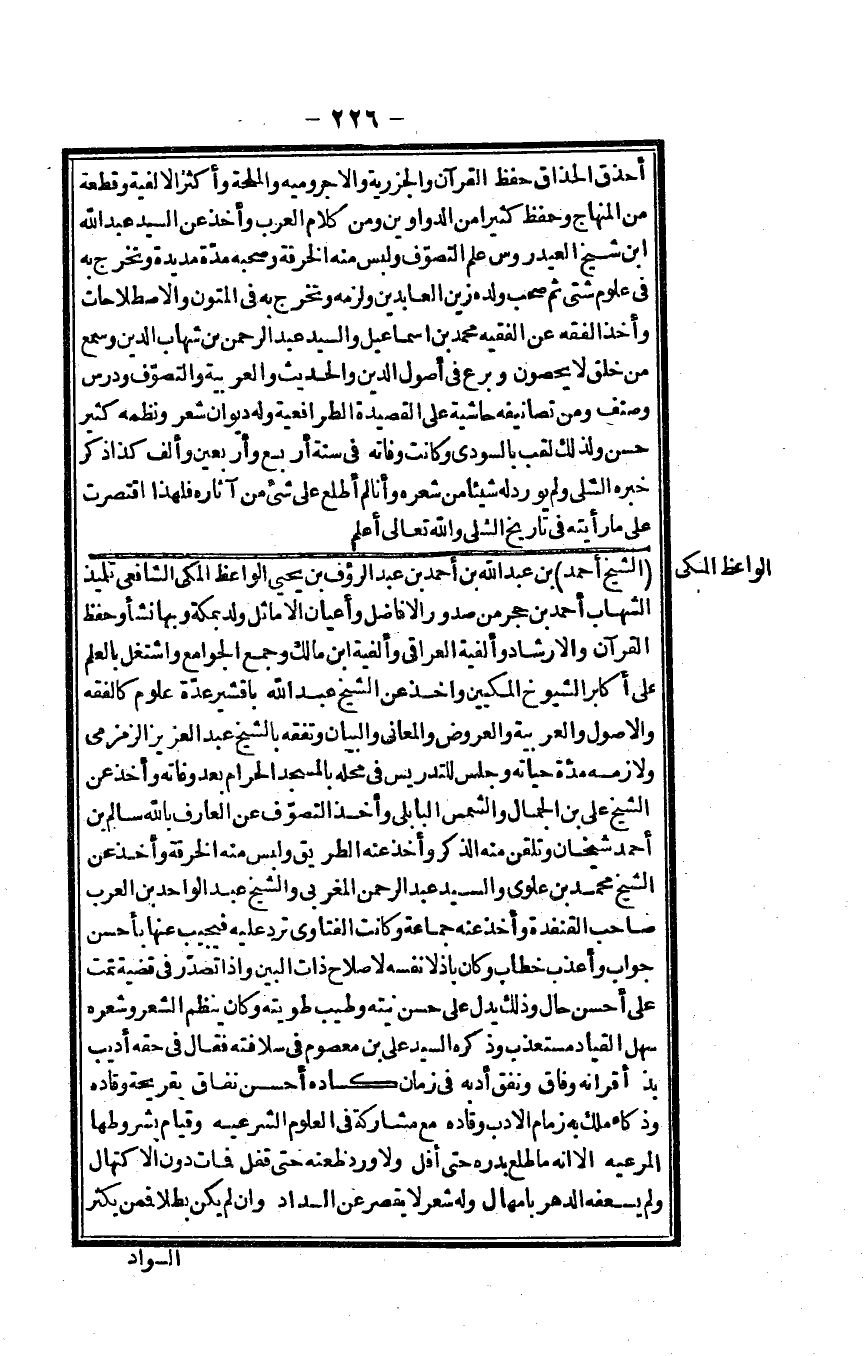 - ٢٢٦ -
أحذق الحذاق حفظ القرآن والجزرية والاجروميه والملحة وأكثر الالفية وقطعة
من المنهاج وحفظ كثيرا من الدواوين ومن كلام العرب وأخذ عن السيد عبدالله
ابن شيخ العيدروس علم التصوّف ولبس منه الخرقة وصحبه مدّة مديدة وتخرج به
فى علوم شتى ثم صحب ولده زين العابدين ولزمه وتخرج به فى المتون والاصطلاحات
وأخذ الفقه عن الفقيه محمد بن اسماعيل والسيد عبد الرحمن بن شهاب الدين وسمع
من خلق لا يحصون وبرع فى أصول الدين والحديث والعربية والتصوّف ودرس
وصنف ومن تصانيفه حاشية على القصيدة الطرافعية وله ديوان شعر ونظمه كثير
حسن ولذلك لقب بالسودى وكانت وفاته فى سنة أربع وأربعين وألف كذا ذكر
خبره الشلى ولم يورد له شيئا من شعره وأنا لم أطلع على شئ من آثاره فلهذا اقتصرت
على ما رأيته فى تاريخ الشلى والله تعالى أعلم
الواعظ المكى
(الشيخ أحمد) بن عبدالله بن أحمد بن عبد الرؤف بن يحيى الواعظ المكى الشافعى تلميذ
الشهاب أحمد بن حجر من صدور الافاضل وأعيان الاماثل ولد بمكة وبها نشأ وحفظ
القرآن والارشاد وألفية العراقى وألفية ابن مالك وجمع الجوامع واشتغل بالعلم
على أكابر الشيوخ المكيين واخذ عن الشيخ عبد الله باقشير عدّة علوم كالفقه
والاصول والعربية والعروض والمعانى والبيان وتفقه بالشيخ عبد العزيز الزمزمى
ولازمه مدّة حياته وجلس للتدريس فى محله بالمسجد الحرام بعد وفاته وأخذ عن
الشيخ على بن الجمال والشمس البابلى وأخذ التصوّف عن العارف بالله سالم بن
أحمد شيخان وتلقن منه الذكر وأخذ عنه الطريق ولبس منه الخرقة وأخذ عن
الشيخ محمد بن علوى والسيد عبد الرحمن المغربى والشيخ عبد الواحد بن العرب
صاحب القنفدة وأخذ عنه جماعة وكانت الفتاوى ترد عليه فيجيب عنها بأحسن
جواب وأعذب خطاب وكان باذلا نفسه لاصلاح ذات البين واذا تصدّر فى قضية تمت
على أحسن حال وذلك يدل على حسن نيته وطيب طويته وكان ينظم الشعر وشعره
سهل القياد مستعذب وذكره السيد على بن معصوم فى سلافته فقال فى حقه أديب
بذ أقرانه وفاق ونفق أدبه فى زمان كساده أحسن نفاق بقريحة وقاده
وذكاء ملك به زمام الادب وقاده مع مشاركة فى العلوم الشرعيه وقيام بشروطها
المرعيه الا انه ما طلع بدره حتى أفل ولا ورد ظعنه حتى قفل فمات دون الاكتهال
ولم يسعفه الدهر بامهال وله شعر لا يقصر عن السداد وان لم يكن بطلا فمن يكثر
السواد